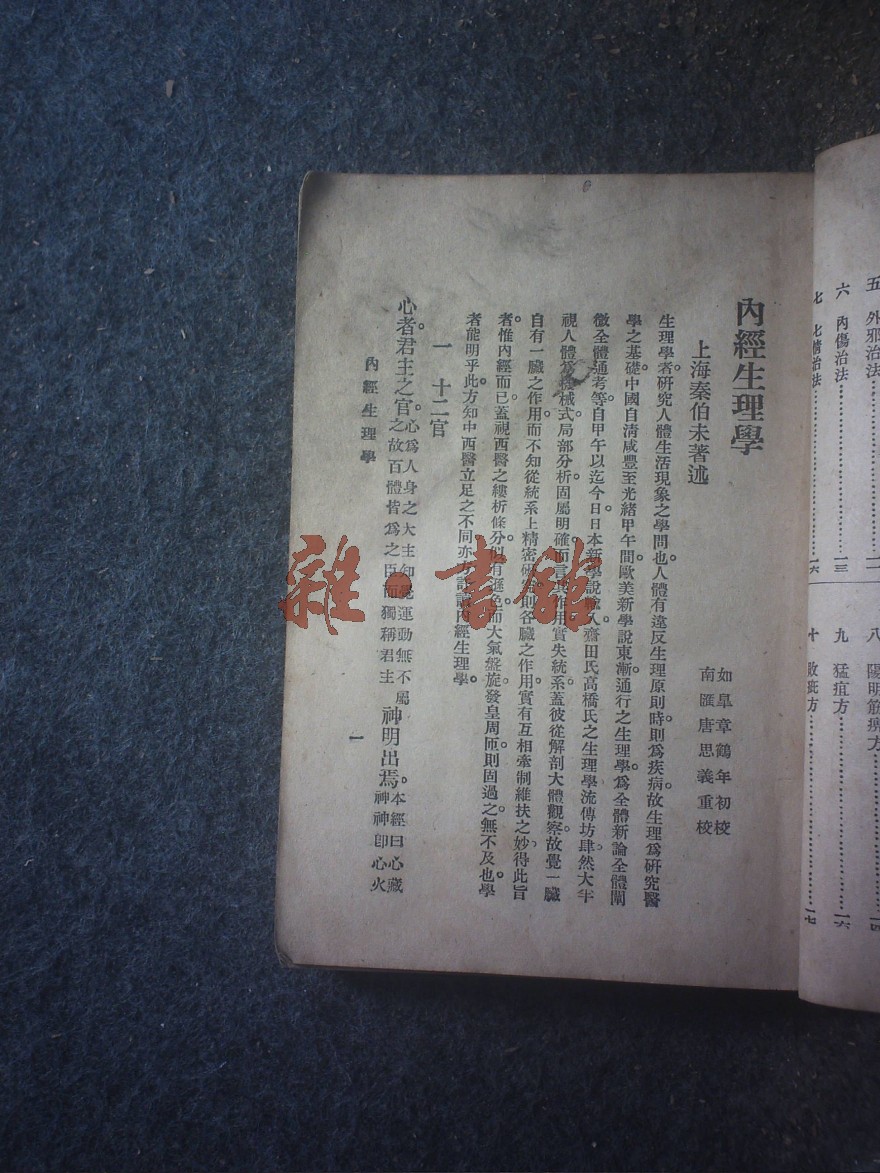 五 外邪治法
六 內傷治法………一三
七 七情治法………一六
八 陽明筋痺方
九 猛疽方………一六
十 敗疵方………一七
內經生理學
上海秦伯未著述
如皐章鶴年初校
南匯唐思義重校
生理學者。研究人體生活現象之學問也。人體有違反生理原則時。則爲疾病。故生理爲研究醫
學之基礎。中國自清咸豐至光緒甲午間。歐美新學說東漸。通行之生理學。爲全體新論全體闡
微全體通考等。自甲午以迄今日。日本新學說輸入。齋田氏高橋氏之生理學。流傳坊肆。然大半
視人體爲機械式。局部分析。固屬明確。而言其作用。實失統系。蓋彼從解剖大體觀察。故覺一臟
自有一臟之作用。而不知從統系上精密研 則各臟之作用。實有互相牽制維扶之妙。得此旨
者。惟內經而已。蓋視西醫之縷析條分。似有遜色。而大氣盤旋。發皇周匝。則固過之無不及也。學
者能明乎此。方知中西醫立足之不同。亦 讀內經生理學。
一 十二官
心者。君主之官。心爲人身之大主知覺運動無不屬之故百體皆爲之臣而獨稱君主神明出焉。本經曰心藏神神卽心火
內經生理學
一
雜·書館